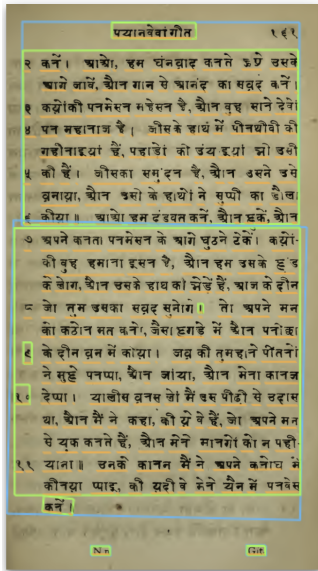 पचानवेवां गीत १६१
२ कनें। आओ, हम धंनय़ाद कनते ऊए उसके
आगे जावें, औान गान से आनंद का सबद कनें।
३ कय़ोंकी पनमेसन महेसन है, औान वुह साने देवों
४ पन महानाज है। जीसके हाथ में पीनथीवी की
गहीनाइयां हैं, पहाड़ों की उंय इयां भी उसी
५ की हैं। जीसका समुंदन है, औान उसने उसे
बनाया, औान उसी के हाथों ने सुप्पी का डौल
६ कीया॥ आओ हम दंडवत कनें, औान हुकें, औान
७ अपने कनता पनमेसन के आगे घुठने टेकें। कय़ों-
की वुह हमाना इसन है, औान हम उसके हुंड
के लोग, औान उसके हाथ की भेड़ें हैं, आज के दीन
८ जो तुम उसका सबद सुनोगे। तो अपने मन
को कठोन मत कनो, जैसा हगड़े में औान पनीछा
९ के दीन बन में कीया। जब की तुमहाने पीतनों
ने मुहे पनप्पा, औान जांया, औान मेना कानज
१० देप्पा। यालीस बनस लों मैं उस पीढ़ी से उदास
था, औान मैं ने कहा, की ये वे हैं, जो अपने मन
से यूक कनते हैं, औान मेने मानगों को न पही-
११ याना॥ उनके कानन मैं ने अपने कनोध में
कीनया प्पाइ, की यदी वे मेने यैन में पनवेस
कनें।
Nin Gift